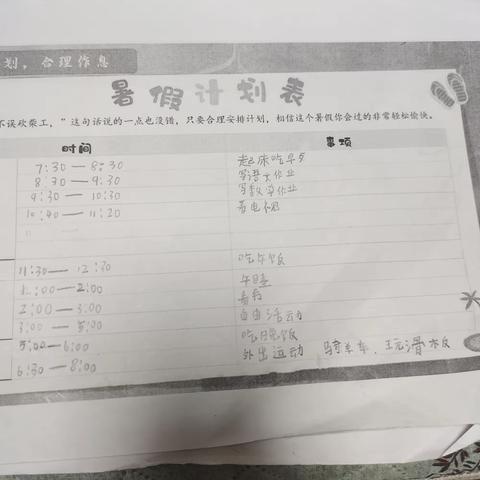 划，合理作息
暑假计划表
不误砍柴工，”这句话说的一点也没错，只要合理安排计划，相信这个暑假你会过的非常轻松愉快。
时间 事项
7:30—8:30 起床吃早
8:30—9:30 写语文作业
9:30—10:30 写数学作业
10:40—11:20 看电视
11:30—12:30 吃午饭
1:00—2:00 午睡
2:00—3:00 看书
3:00—5:00 自由活动
5:00—6:00 吃晚饭
6:30—8:00 外出运动 骑单车、玩滑板